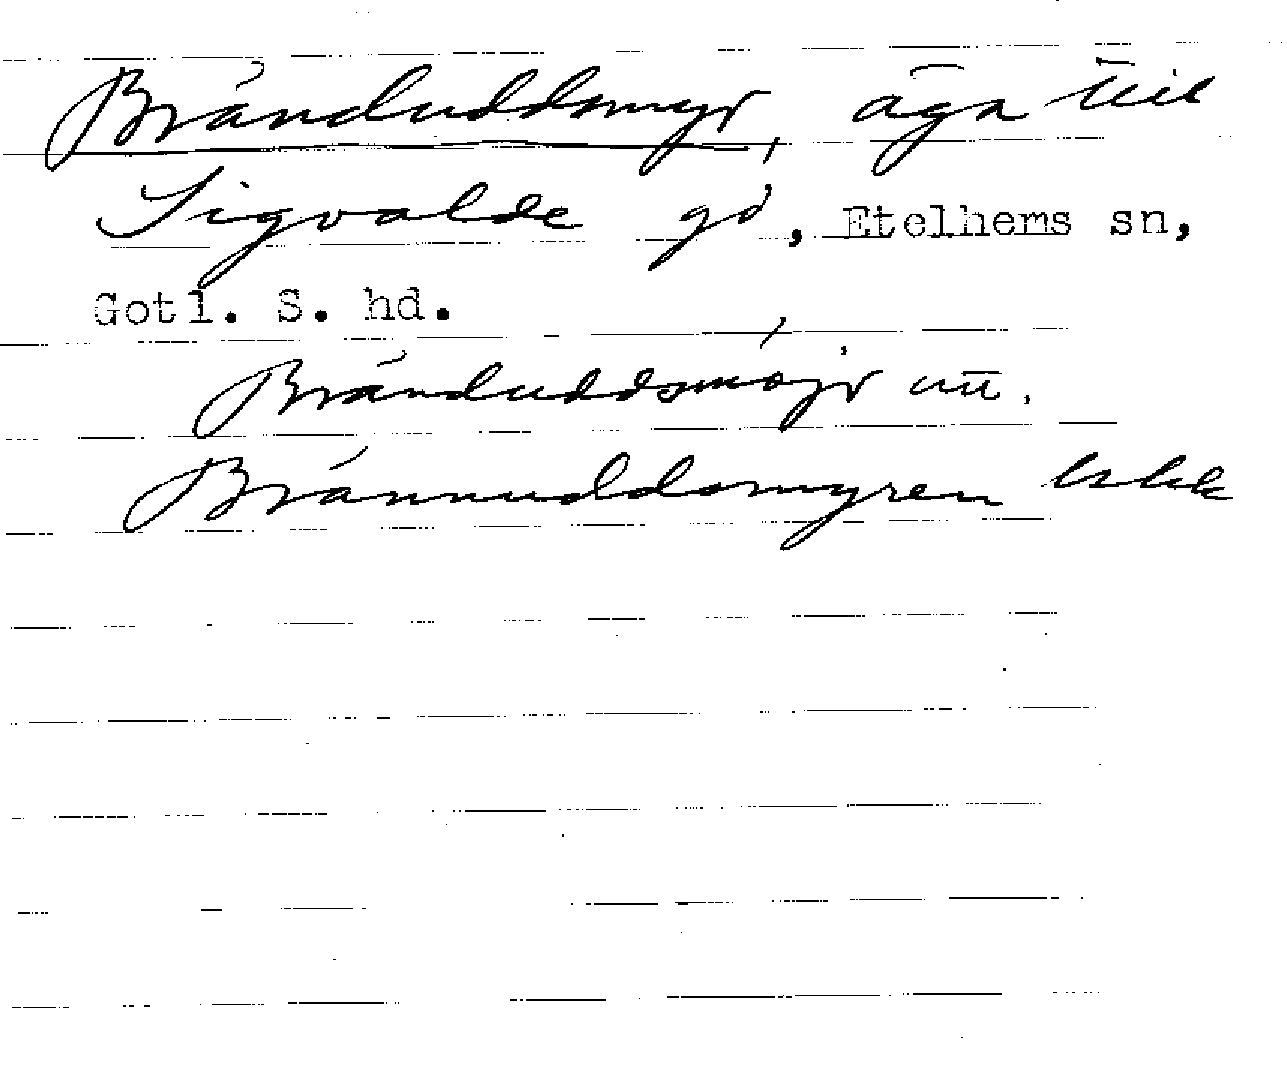 Bränduddsmyr, äga till
Sigvalde gd, Etelhems sn,
Gotl. S. hd.
Bränduddsmöjr utt.
Brännuddsmyren